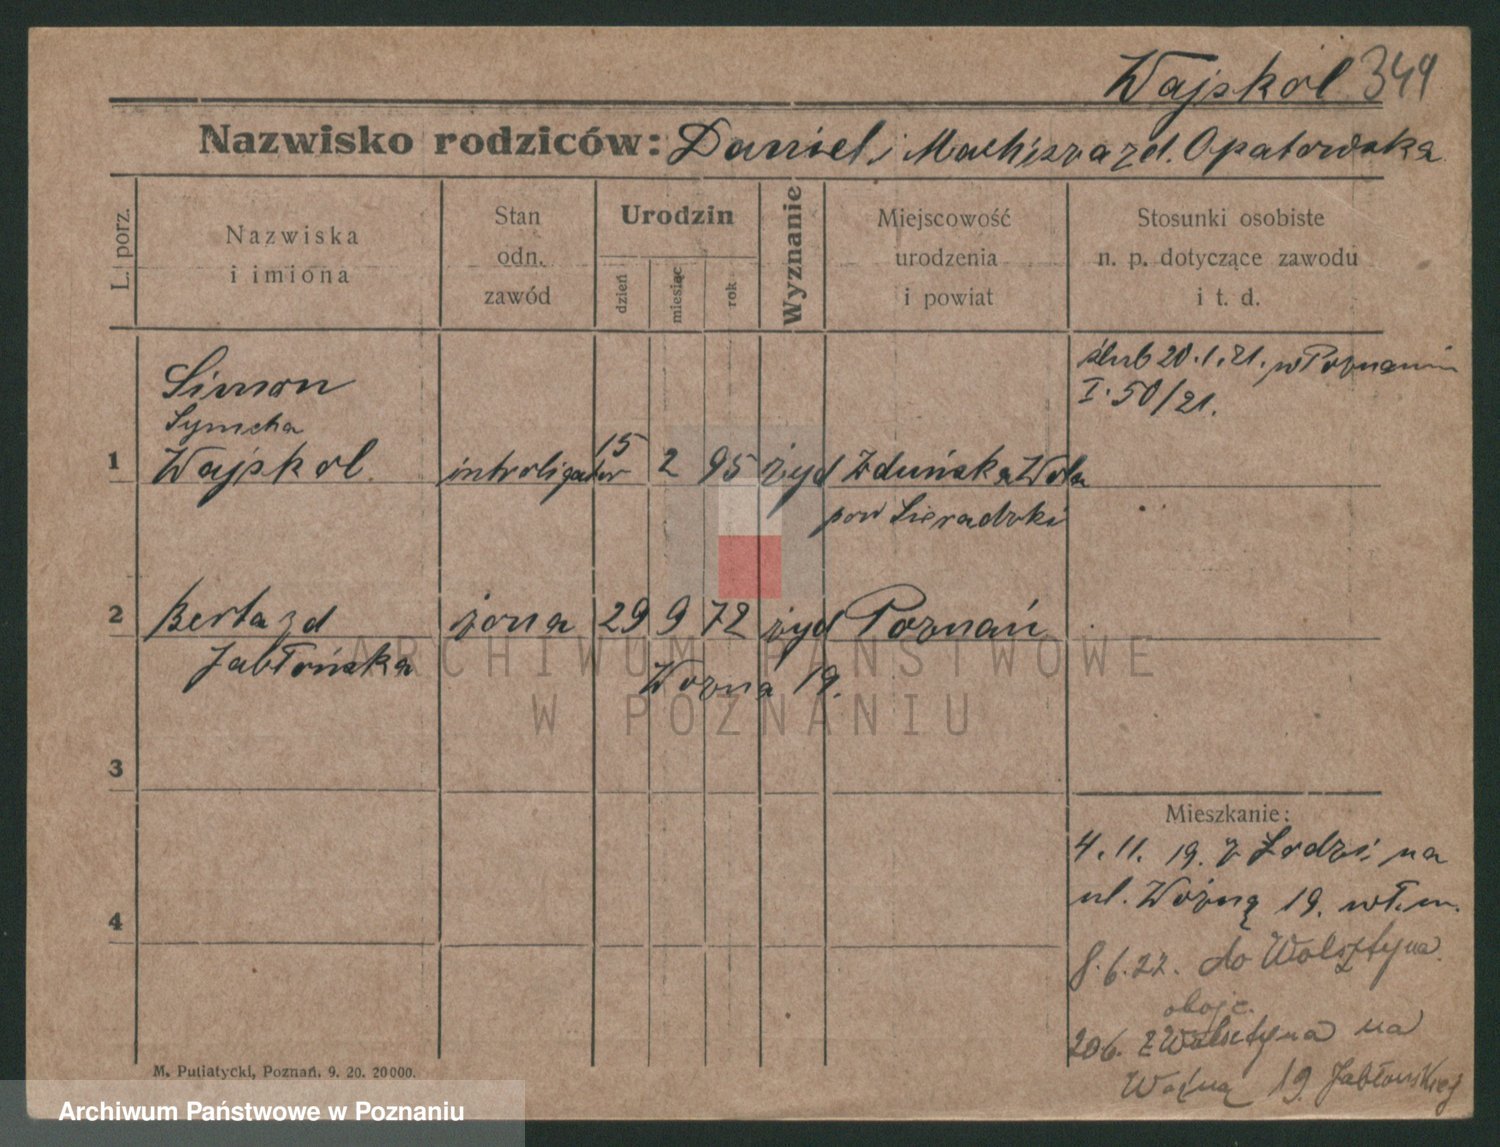 Wajskol 349
Nazwisko rodziców: Daniel i Machsza zd. Opatowska
L. porz.
Nazwiska
i imiona
Stan
odn.
zawód
Urodzin
dzień
miesiąc
rok
Wyznanie
Miejscowość
urodzenia
i powiat
Stosunki osobiste
n. p. dotyczące zawodu
i t. d.
ślub 20.1.21. w Poznaniu
I. 50/21.
Simon
Symcha
1 Wajskol introligator 15 2 95 żyd Zduńska Wola
pow Sieradzki
2 Berta zd żona 29 9 72 żyd Poznań
Jabłońska Wozna 19.
ARCHIWUM PAŃSTWOWE
W POZNANIU
3
Mieszkanie:
4. 11. 19. z Łodzi na
ul. Woźną 19. wł.m.
4
8.6.22. do Wolsztyna
oboje.
20 6. z Wolsztyna na
Woźną 19. Jabłońskiej
M. Putiatycki, Poznań. 9. 20. 20000.
Archiwum Państwowe w Poznaniu